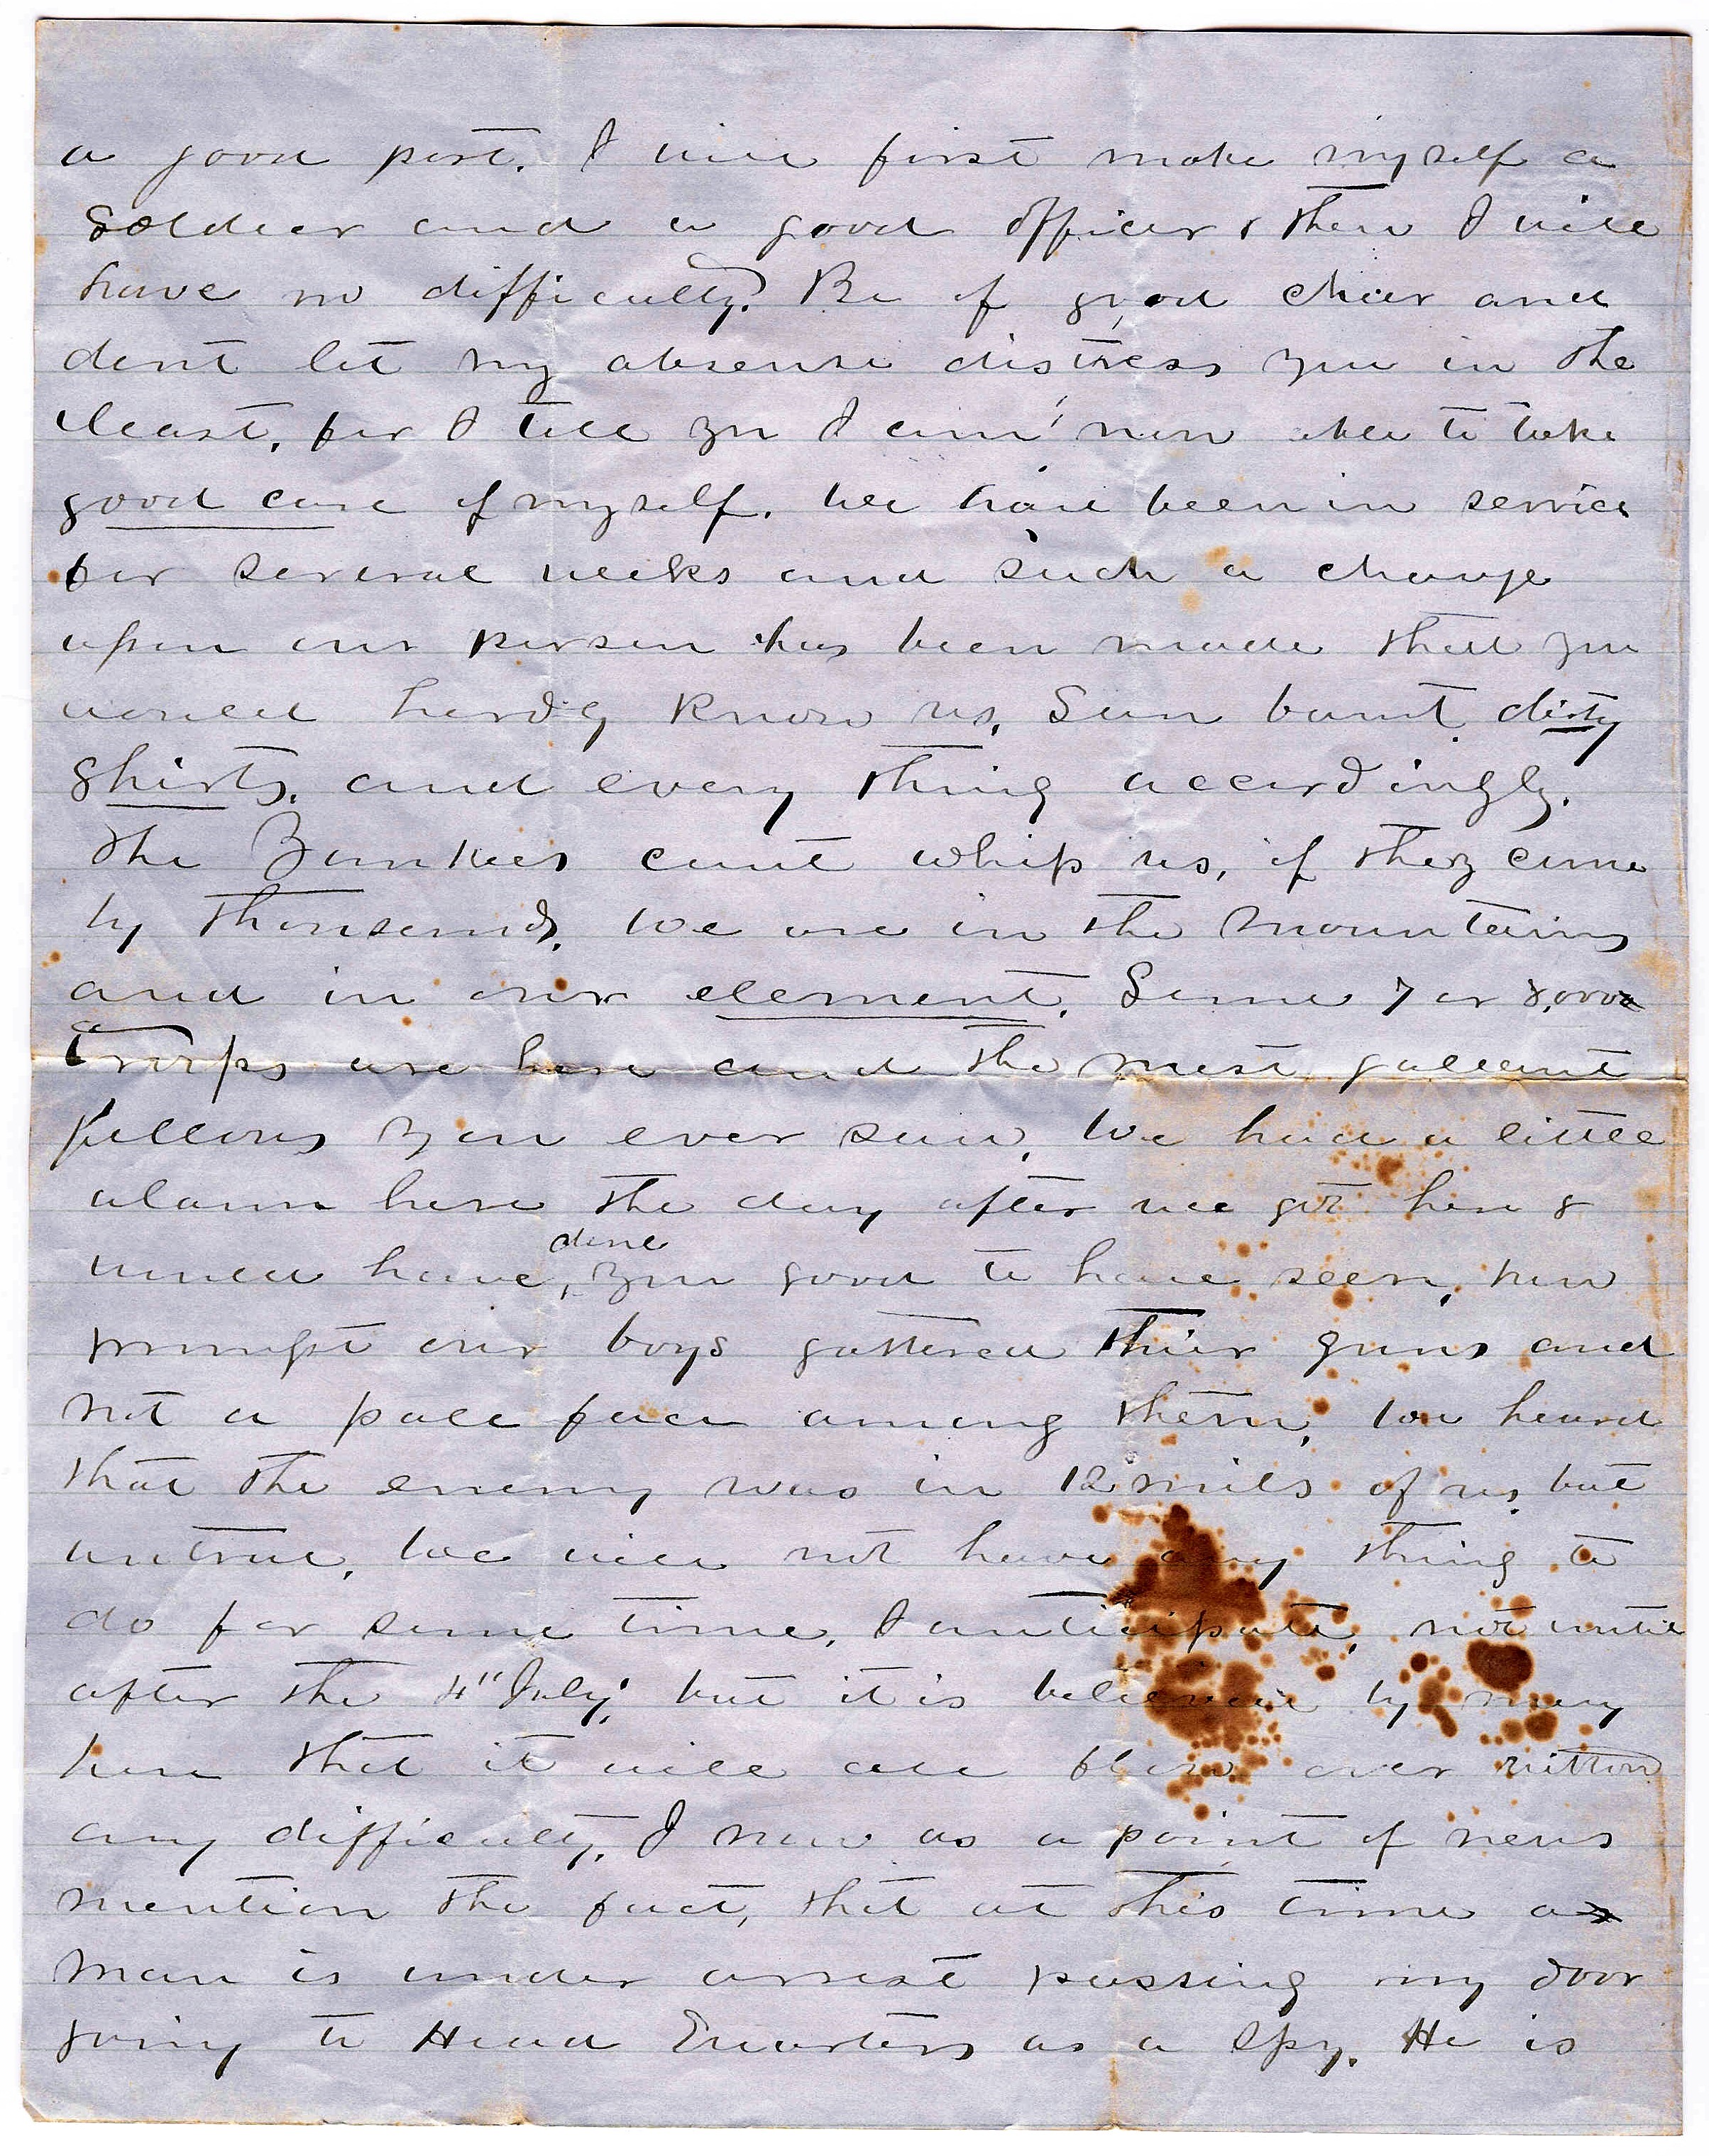 a good post. I will first make myself a
soldier and a good officer & then I will
have no difficulty. Be of good cheer and
dont let my absense distress you in the
least, for I tell you I am now able to take
good care of myself. We have been in service
for several weeks and such a change
upon our person has been made that you
would hardly know us, Sun burnt, dirty
shirts, and every thing accordingly.
The Yankees cant whip us, if they come
by thousands. We are in the mountains
and in our element. Some 7 or 8,000
Troops are here and the most gallant
fellows you ever saw, We had a little
alarm here the day after we got here &
would have, done you good to have seen, how
prompt our boys gathered thier guns and
not a pale face among them, We heard
that the enemy was in 12 miles of us, but
untrue, We will not have any thing to
do for some time, I anticipate, not until
after the 4" July, but it is believed by many
here that it will all blow over without
any difficulty, I now as a point of news
mention the fact, that at this time a
man is under arrest passing my door
going to Head Quarters as a Spy. He is